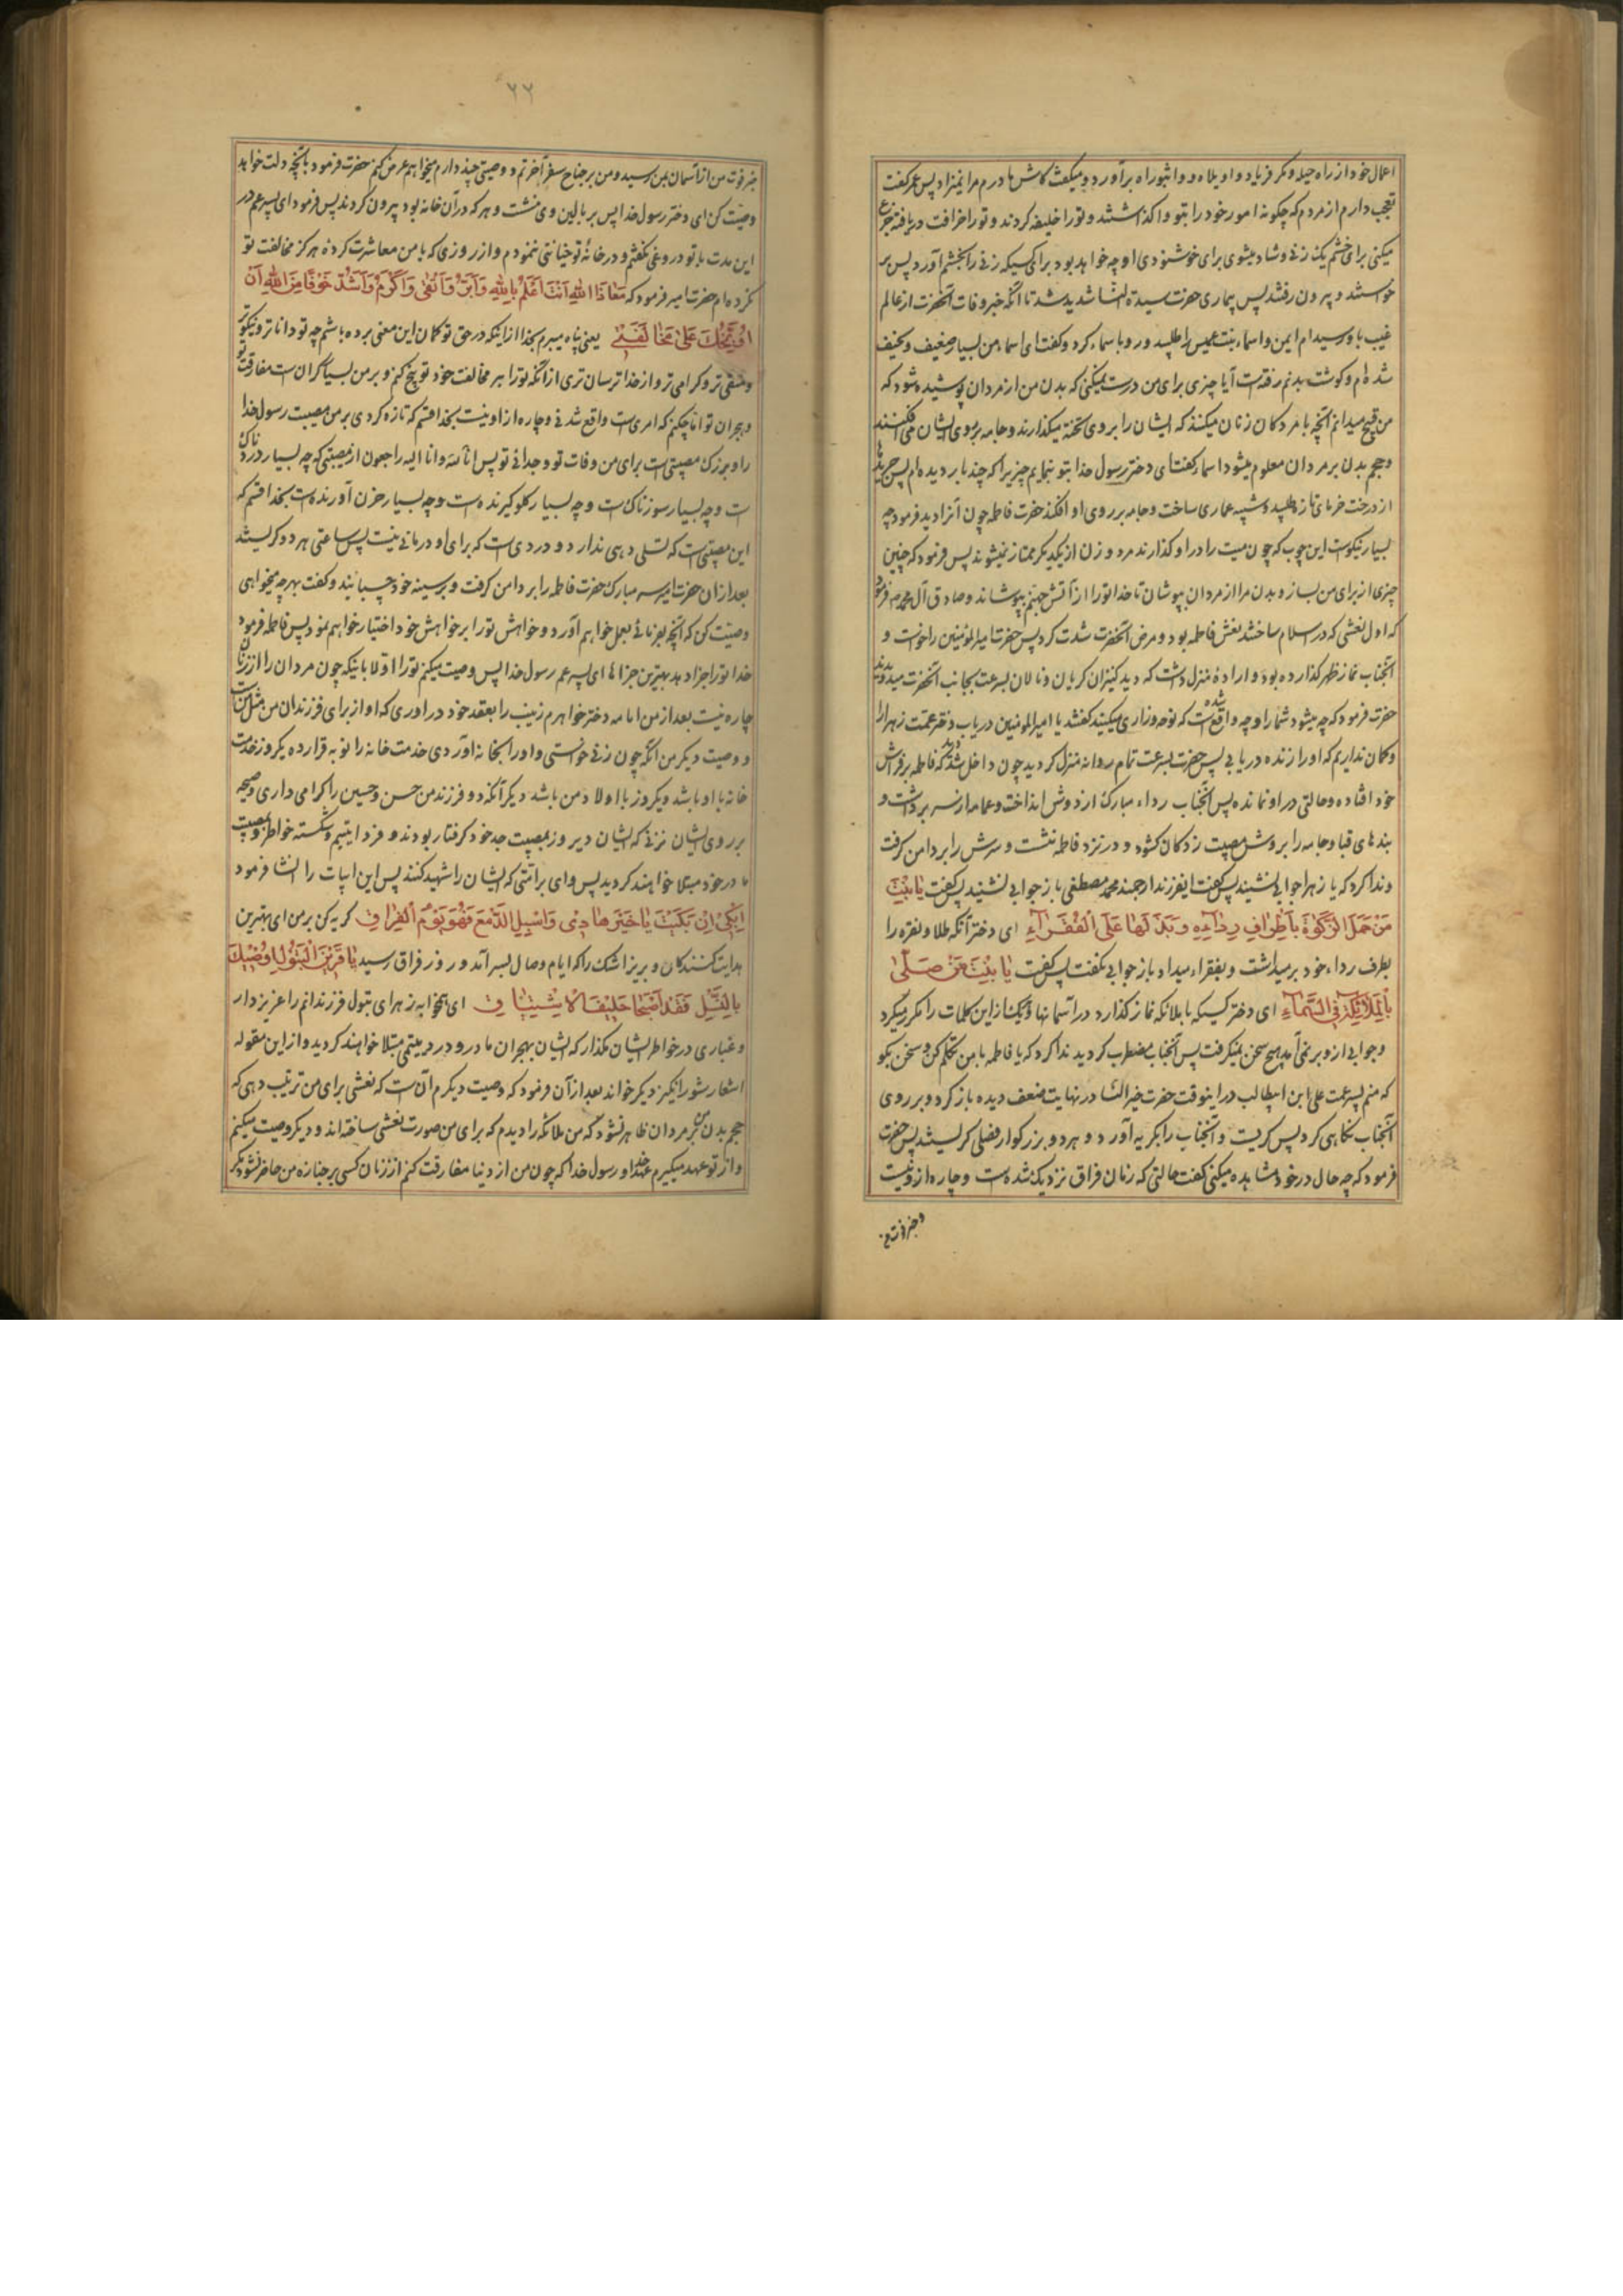 اعمال خود از راه حیله و مکر فریاد و اویلاه و وا ثبوراه برآورد و میکفت کاش مادرم مرا نمیزاد پس عمر کفت
تعجب دارم از مردم که چکونه امور خود را بتو واکذاشتند و تورا خلیفه کردند و تورا خرافت دریافته جزع
میکنی برای خشم یک زنی و شاد میشوی برای خوشنودی او چه خواهد بود برای کسیکه زنی را بخشم آورد پس بر
خواستند و بیرون رفتند پس بیماری حضرت سیدة النسا شدید شد تا آنکه خبر وفات آنحضرت از عالم
غیب باو رسید ام ایمن و اسماء بنت عمیس را طلبید و رو باسماء کرد و کفت ای اسماء من بسیار ضعیف و نحیف
شده ام و کوشت بدنم رفته است آیا چیزی برای من درست نمیکنی که بدن من از مردان پوشیده شود که
من قبیح میدانم آنچه با مردکان زنان میکنند که ایشان را بر وی تخته میکذارند و جامه بر روی ایشان می افکنند
و حجم بدن بر مردان معلوم میشود اسماء کفت ای دختر رسول خدا بتو بنمایم چیزیرا که چند بار دیده ام پس جریدها
از درخت خرمای تازه طلبیده شبیه عماری ساخت و جامه بر روی او افکند حضرت فاطمه چون آنرا دید فرمود چه
بسیار نیکوست این چوب که چون میت را در او کذارند مرد و زن از یکدیکر ممتاز نمیشوند پس فرمود که چنین
چیزی از برای من بساز و بدن مرا از مردان بپوشان تا خدا تورا از آتش جهنم بپوشاند و صادق آل محمد ص فرمود
که اول نعشی که در اسلام ساختند نعش فاطمه بود و مرض آنحضرت شدت کرد پس حضرت امیرالمؤمنین را خواست و
آنجناب نماز ظهر کذارده بود و ارادهٔ منزل داشت که دید کنیزان کریان و نالان بسرعت بجانب آنحضرت میدویدند
حضرت فرمود که چه میشود شما را و چه واقع شده است که نوحه و زاری میکنید کفتند یا امیرالمومنین دریاب دختر عمت زهرا را
و کمان نداریم که او را زنده دریابی پس حضرت بسرعت تمام روانه منزل کردید چون داخل شد دید که فاطمه بر فراش
خود افتاده و حالتی در او نمانده پس آنجناب رداء مبارک از دوش انداخت و عمامه از سر برداشت و
بندهای قبا و جامه را بروش مصیبت زدکان کشود و در نزد فاطمه نشست و سرش را بر دامن کرفت
و ندا کرد که یا زهرا جوابی نشنید پس کفت ایفرزند ارجمند محمد مصطفی باز جوابی نشنید پس کفت یا بِنْتَ
مَنْ حَمَلَ الزَّکوٰةَ بِاَطْرافِ رِداءِهِ وَ بَذَلَها عَلَی الْفُقَراءِ ای دختر آنکه طلا و نقره را
بطرف رداء خود بر میداشت و بفقراء میداد باز جوابی نکفت پس کفت یا بِنْتَ مَنْ صَلّیٰ
بِالْمَلائِکَةِ فِی السَّماءِ ای دختر کسیکه با ملائکه نماز کذارد در آسمانها و یک یک از این کلمات را مکرر میکرد
و جوابی از او بر نمی آمد و هیچ سخن نمیکرفت پس آنجناب مضطرب کردید ندا کرد که یا فاطمه با من تکلم کن و سخن بکو
که منم پسر عمت علی ابن ابیطالب در اینوقت حضرت خیر النسا در نهایت ضعف دیده باز کرد و بر روی
آنجناب نکاهی کرد پس کریست و آنجناب را بکریه آورد و هر دو بزرکوار فصلی کریستند پس حضرت
فرمود که چه حال در خود مشاهده میکنی کفت حالتی که زمان فراق نزدیک شده است و چاره از او نیست
و خبر فوت من
۶۶
خبر فوت من از آسمان بمن رسید و من بر جناح سفر آخرتم و وصیتی چند دارم میخواهم عرض کنم حضرت فرمود بآنچه دلت خواهد
وصیت کن ای دختر رسول خدا پس بر بالین وی نشست و هر که در آن خانه بود بیرون کردند پس فرمود ای پسر عم در
این مدت با تو دروغی نکفتم و در خانهٔ تو خیانتی ننمودم و از روزی که با من معاشرت کردهٔ هرکز مخالفت تو
نکرده ام حضرت امیر فرمود که مَعاذَ اللّٰهِ اَنْتَ اَعْلَمُ بِاللّٰهِ وَ اَبَرُّ وَ اَتْقیٰ وَ اَکْرَمُ وَ اَشَدُّ خَوْفًا مِنَ اللّٰهِ اَنْ
اُوَبِّخَکَ عَلیٰ مُخالَفَتی یعنی پناه میبرم بخدا از اینکه در حق تو کمان این معنی برده باشم چه تو داناتر و نیکوتر
و متقی تر و کرامی تر و از خدا ترسان تری از آنکه تورا بر مخالفت خود توبیخ کنم و بر من بسیار کران است مفارقت تو
و هجران تو اما چکنم که امری است واقع شدنی و چاره از او نیست بخدا قسم که تازه کردی بر من مصیبت رسول خدا
را و بزرک مصیبتی است برای من وفات تو و جدائی تو پس انا لله و انا الیه راجعون از مصیبتی که چه بسیار دردناک
است و چه بسیار سوزناک است و چه بسیار کلوکیرنده است و چه بسیار حزن آورنده است بخدا قسم که
این مصیبتی است که تسلی دهی ندارد و دردی است که برای او درمانی نیست پس ساعتی هر دو کریستند
بعد از آن حضرت امیر سر مبارک حضرت فاطمه را بر دامن کرفت و بر سینه خود چسبانید و کفت بهر چه میخواهی
وصیت کن که آنچه بفرمائی بعمل خواهم آورد و خواهش تورا بر خواهش خود اختیار خواهم نمود پس فاطمه فرمود
خدا تورا جزا دهد بهترین جزاها ای پسر عم رسول خدا پس وصیت میکنم تورا اولا باینکه چون مردان را از زنان
چاره نیست بعد از من امامه دختر خواهرم زینب را بعقد خود در آوری که او از برای فرزندان من مثل من است
و وصیت دیکر من آنکه چون زنی خواستی و او را بخانه آوردی خدمت خانه را نوبه قرار ده یکروز خدمت
خانه با او باشد و یکروز با اولاد من باشد دیکر آنکه دو فرزند من حسن و حسین را کرامی داری و صیحه
بر روی ایشان نزنی که ایشان دیروز بمصیبت جد خود کرفتار بودند و فردا یتیم و شکسته خواطر و بمصیبت
مادر خود مبتلا خواهند کردید پس وای بر امتی که ایشان را شهید کنند پس این ابیات را انشا فرمود
اِبْکِنی اِنْ بَکَیْتَ یا خَیْرَ هادی وَ اسْبِلِ الدَّمْعَ فَهُوَ یَوْمُ الْفِراقِ کریه کن بر من ای بهترین
هدایت کنندکان و بریز اشک را که ایام وصال بسر آمد و روز فراق رسید یا قَرینَ الْبَتُولِ اُوصیکَ
بِالنَّسْلِ فَقَدْ اَصْبَحا حَلیفَا اشْتِیاقِ ای همخوابه زهرای بتول فرزندانم را عزیز دار
و غباری در خواطر ایشان مکذار که ایشان بهجران مادر و درد یتیمی مبتلا خواهند کردید و از این مقوله
اشعار شور انکیز دیکر خواند بعد از آن فرمود که وصیت دیکرم آن است که نعشی برای من ترتیب دهی که
حجم بدن من بر مردان ظاهر نشود که من ملائکه را دیدم که برای من صورت نعشی ساخته اند و دیکر وصیت میکنم
و از تو عهد میکیرم عهد خدا و رسول خدا که چون من از دنیا مفارقت کنم از زنان کسی بر جنازه من حاضر نشود مکر